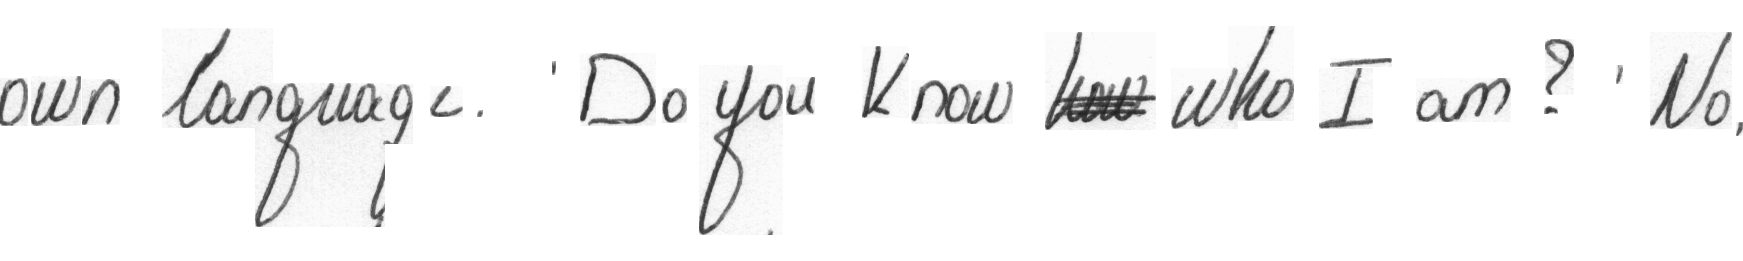 own language. 'Do you know who I am?' No,